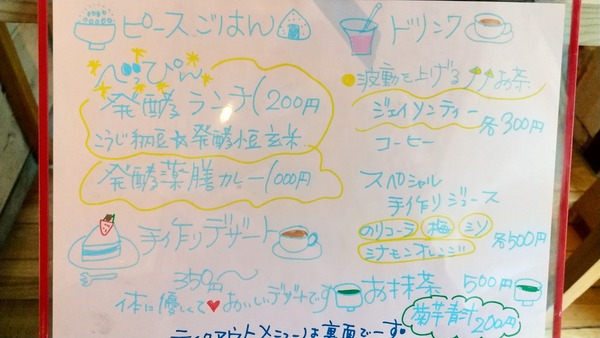 ピースごはん
べっぴん
発酵ランチ1200円
こうじ納豆★発酵小豆玄米
発酵薬膳カレー1000円
手作りデザート
350円〜
体に優しくて♥おいしいデザートです
ドリンク
波動を上げるお茶
ジェイソンティー
各300円
コーヒー
スペシャル
手作りジュース
のりコーラ 梅 シソ
シナモンオレンジ
各500円
お抹茶 500円
菊芋青汁
200円
テイクアウトメニューは裏面でーす。